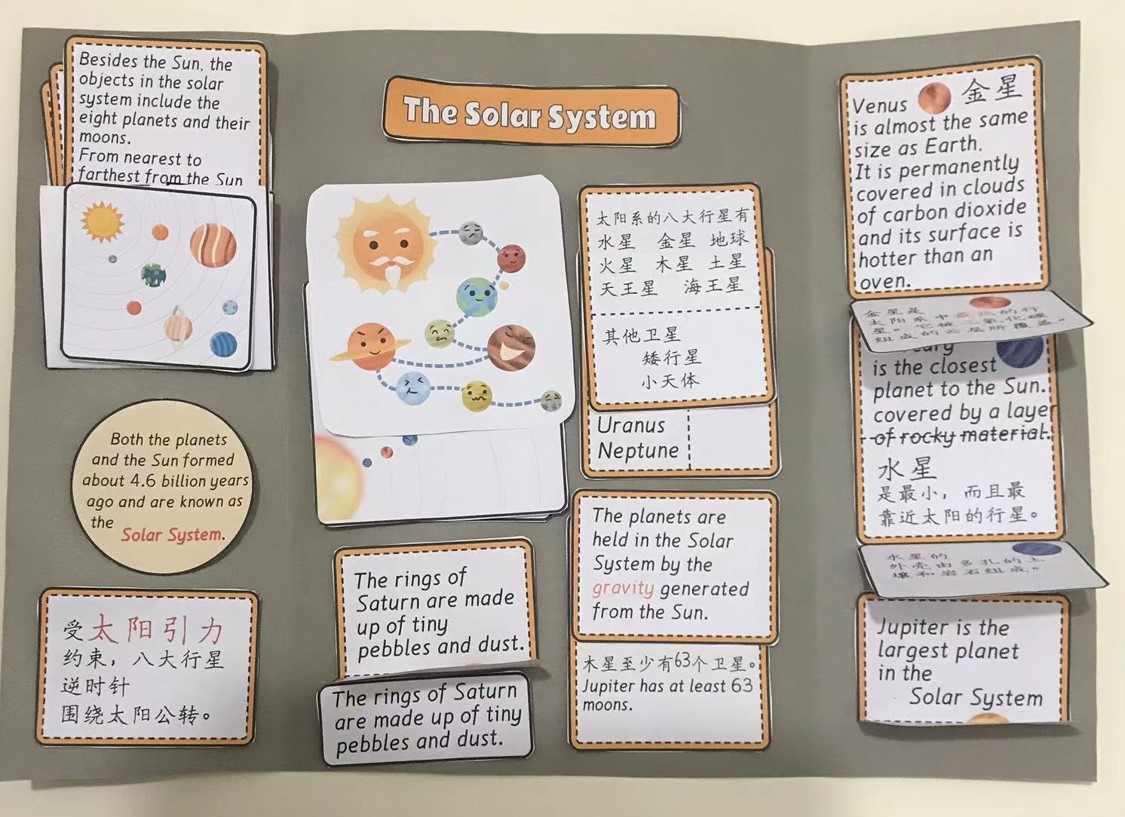 Besides the Sun, the
objects in the solar
system include the
eight planets and their
moons.
From nearest to
farthest from the Sun
Both the planets
and the Sun formed
about 4.6 billion years
ago and are known as
the
Solar System.
受太阳引力
约束，八大行星
逆时针
围绕太阳公转。
The Solar System
太阳系的八大行星有
水星 金星 地球
火星 木星 土星
天王星 海王星
其他卫星
矮行星
小天体
Uranus
Neptune
The rings of
Saturn are made
up of tiny
pebbles and dust.
The rings of Saturn
are made up of tiny
pebbles and dust.
The planets are
held in the Solar
System by the
gravity generated
from the Sun.
木星至少有63个卫星。
Jupiter has at least 63
moons.
Venus 金星
is almost the same
size as Earth.
It is permanently
covered in clouds
of carbon dioxide
and its surface is
hotter than an
oven.
金星是
太阳系中最热的行
星。它被二氧化碳
组成的云层所覆盖。
is the closest
planet to the Sun.
covered by a layer
of rocky material.
水星
是最小，而且最
靠近太阳的行星。
水星的
外壳由多孔的土
壤和岩石组成。
Jupiter is the
largest planet
in the
Solar System